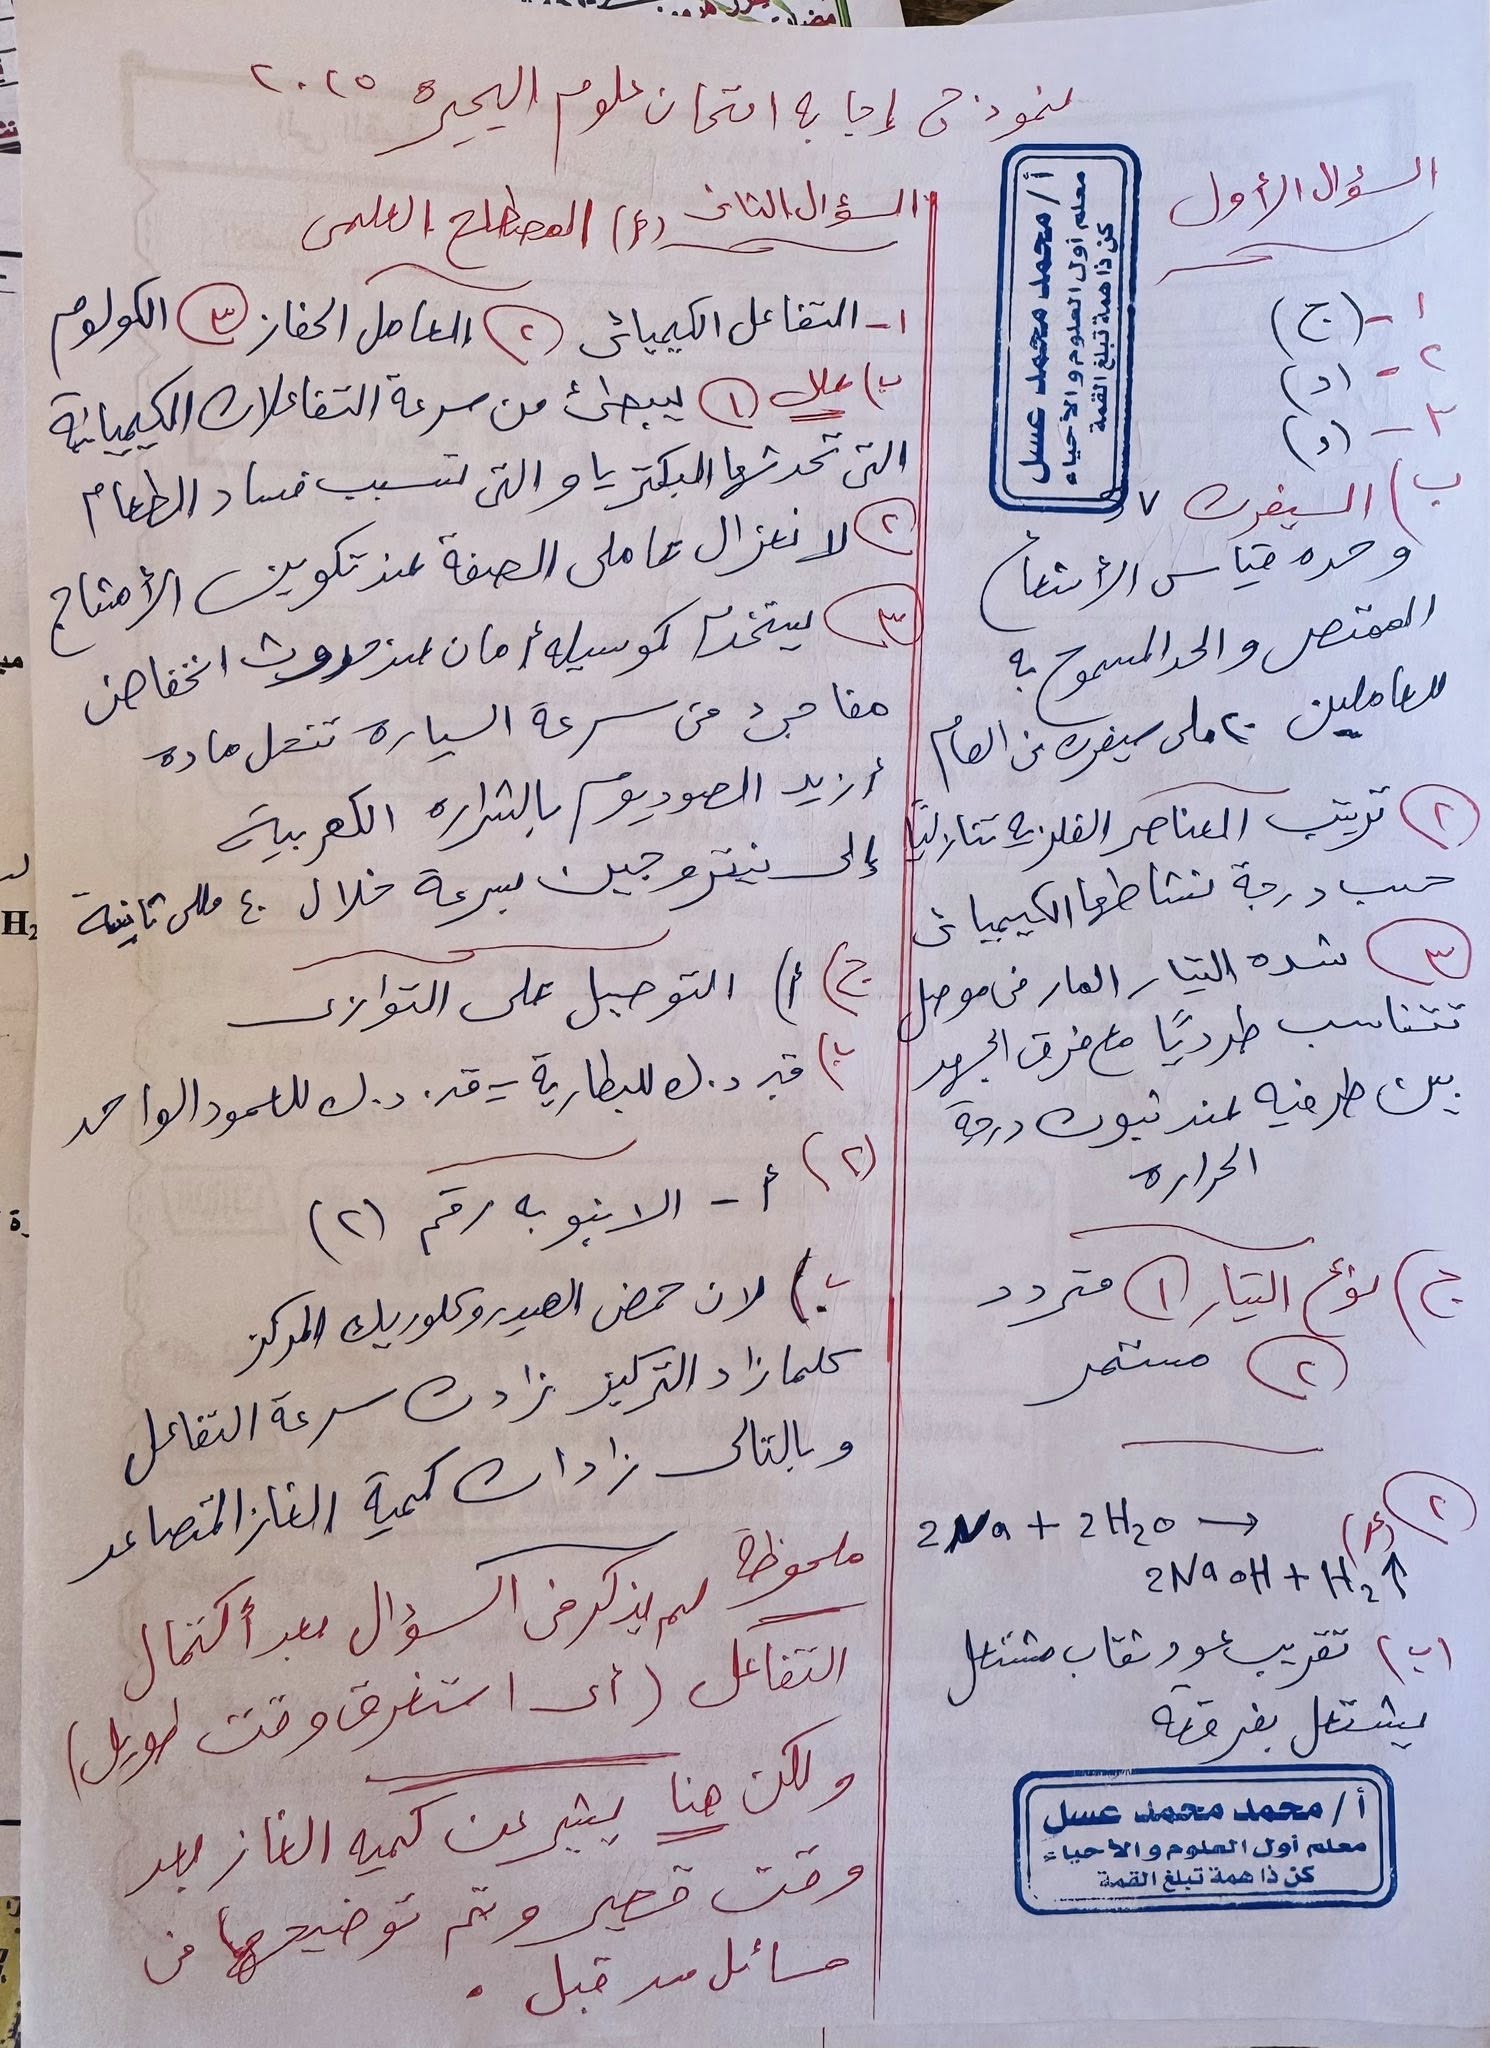 نموذج إجابه امتحان علوم البحيره ٢٠٢٥
السؤال الأول
١- (ج)
٢- (د)
٣- (د)
ب) السيفرت
وحده قياس الأشعاع
الممتص والحد المسموح به
للعاملين ٢٠ ملى سيفرت فى العام
٢ ترتيب العناصر الفلزيه تنازليًا
حسب درجة نشاطها الكيميائى
٣ شده التيار المار فى موصل
تتناسب طرديًا مع فرق الجهد
بين طرفيه عند ثبوت درجة
الحراره
ج) نوع التيار ١ متردد
٢ مستمر
٢ (أ) 2Na + 2H₂O →
2NaOH + H₂↑
(ب) تقريب عود ثقاب مشتعل
يشتعل بفرقعة
أ/ محمد محمد عسل
معلم أول العلوم والأحياء
كن ذا همة تبلغ القمة
السؤال الثانى (أ) المصطلح العلمى
١- التفاعل الكيميائى ٢ العامل الحفاز ٣ الكولوم
ب) علل ١ يبطئ من سرعة التفاعلات الكيميائية
التى تحدثها البكتريا والتى تسبب فساد الطعام
٢ لانعزال عاملى الصفة عند تكوين الأمشاج
٣ يستخدم كوسيله أمان عند حدوث انخفاض
مفاجئ فى سرعة السياره تنحل ماده
أزيد الصوديوم بالشراره الكهربية
إلى نيتروجين بسرعة خلال ٤٠ مللى ثانية
ج) أ) التوصيل على التوازى
ب) ق.د.ك للبطارية = ق.د.ك للعمود الواحد
(٢) أ - الانبوبه رقم (٢)
ب) لان حمض الهيدروكلوريك المركز
كلما زاد التركيز زادت سرعة التفاعل
وبالتالى زادات كمية الغاز المتصاعد
ملحوظة لم يذكر فى السؤال بعد أكتمال
التفاعل (أى استغرق وقت طويل)
ولكن هنا يشير عن كميه الغاز بعد
وقت قصير وتم توضيحها فى
مسائل من قبل.
أ/ محمد محمد عسل
معلم أول العلوم والأحياء
كن ذا همة تبلغ القمة